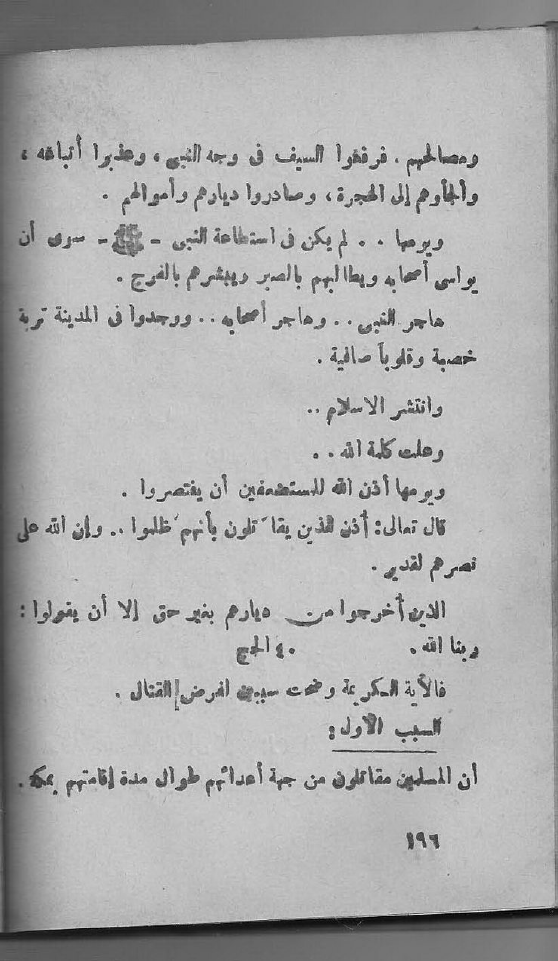 ومصالحهم . فرفعوا السيف فى وجه النبى ، وعذبوا أتباعه ،
وألجأوهم إلى الهجرة ، وصادروا ديارهم وأموالهم .
ويومها . . لم يكن فى استطاعة النبى - ﷺ - سوى أن
يواسى أصحابه ويطالبهم بالصبر ويبشرهم بالفرج .
هاجر النبى . . وهاجر أصحابه . . ووجدوا فى المدينة تربة
خصبة وقلوباً صافية .
وانتشر الاسلام . .
وعلت كلمة الله . .
ويومها أذن الله للمستضعفين أن ينتصروا .
قال تعالى : أُذن للذين يقاتَلون بأنهم ظلموا . . وإن الله على
نصرهم لقدير .
الذين أُخرجوا من ديارهم بغير حق إلا أن يقولوا :
ربنا الله . ٤٠ الحج
فالآية الكريمة وضحت سببين لفرض القتال .
السبب الأول :
أن المسلمين مقاتلون من جهة أعدائهم طوال مدة إقامتهم بمكة .
١٩٦